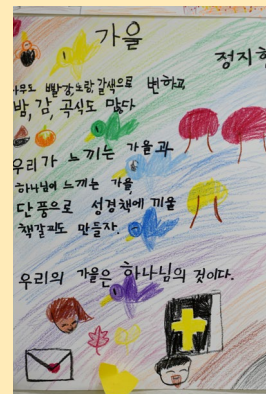 가을
정지
나무도 빨강, 노랑, 갈색으로 변하고
밤, 감, 곡식도 많다
우리가 느끼는 가을과
하나님이 느끼는 가을
단풍으로 성경책에 끼울
책갈피도 만들자.
우리의 가을은 하나님의 것이다.